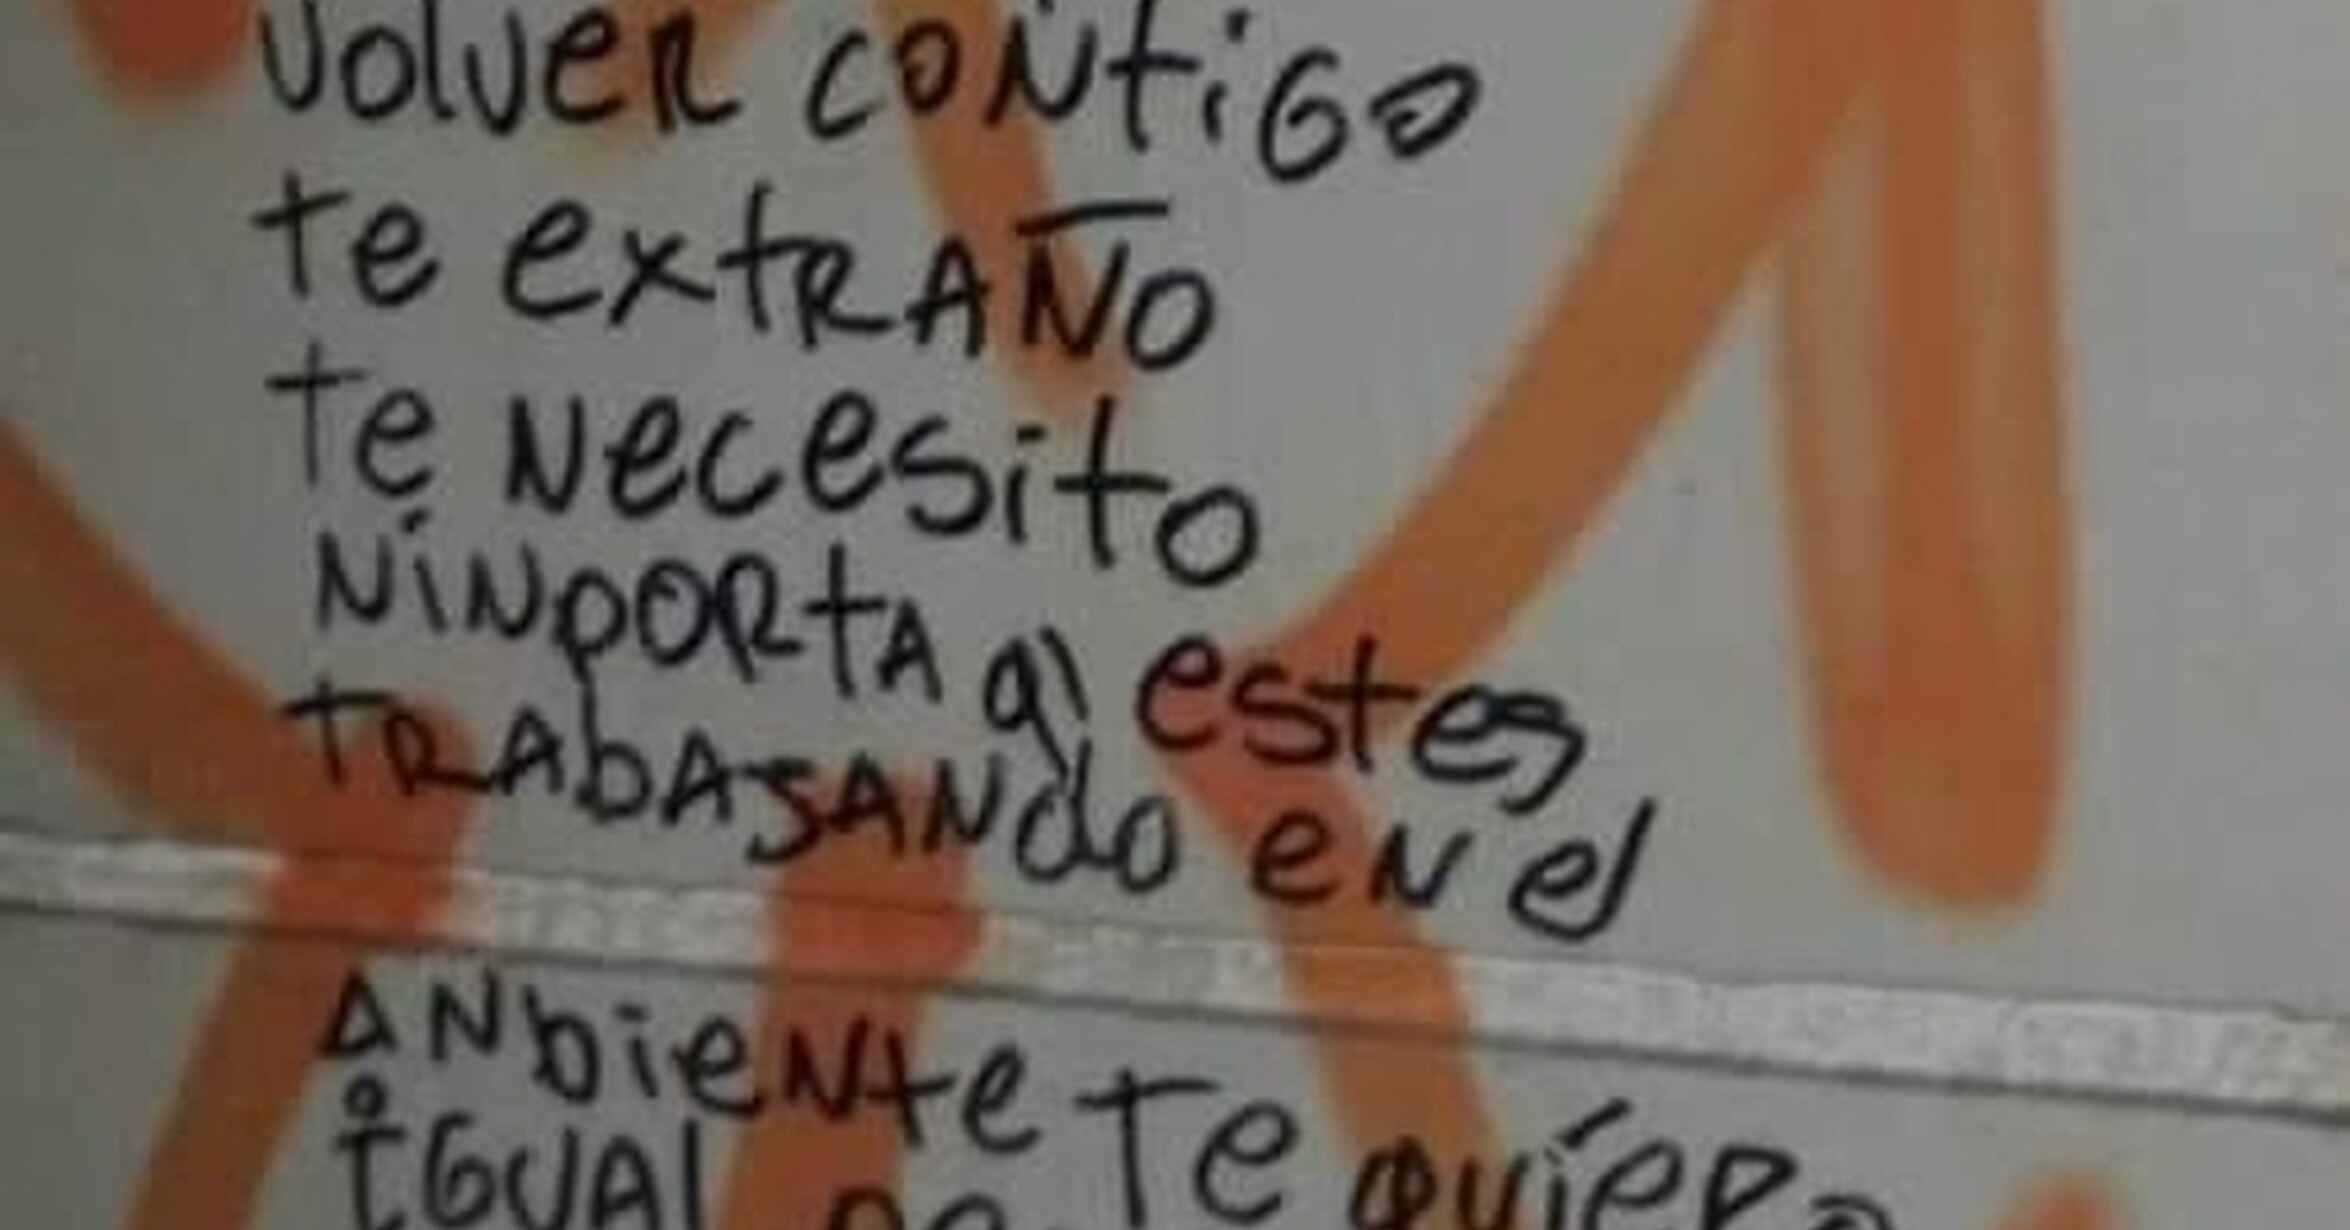 volver contigo
te extraño
te necesito
ninporta q' estes
trabajando en el
anbiente te quiero
igual